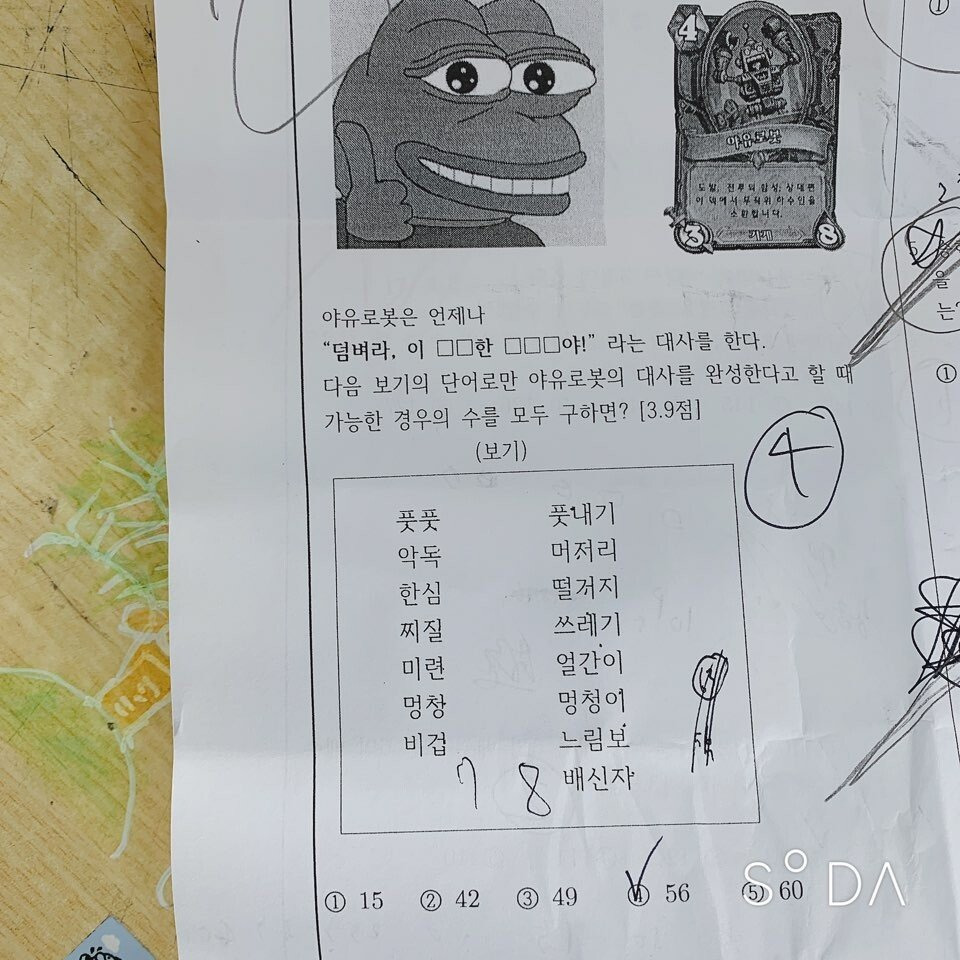 4
야유로봇
도발, 전투의 함성: 상대편
이 덱에서 무작위 하수인을
소환합니다.
3 기계 8
야유로봇은 언제나
“덤벼라, 이 □□한 □□□야!” 라는 대사를 한다.
다음 보기의 단어로만 야유로봇의 대사를 완성한다고 할 때
가능한 경우의 수를 모두 구하면? [3.9점]
(보기)
4
풋풋 풋내기
악독 머저리
한심 떨거지
찌질 쓰레기
미련 얼간이
멍창 멍청이
비겁 느림보
배신자
7 8
① 15 ② 42 ③ 49 ④ 56 ⑤ 60
SODA
①
을
는?
①